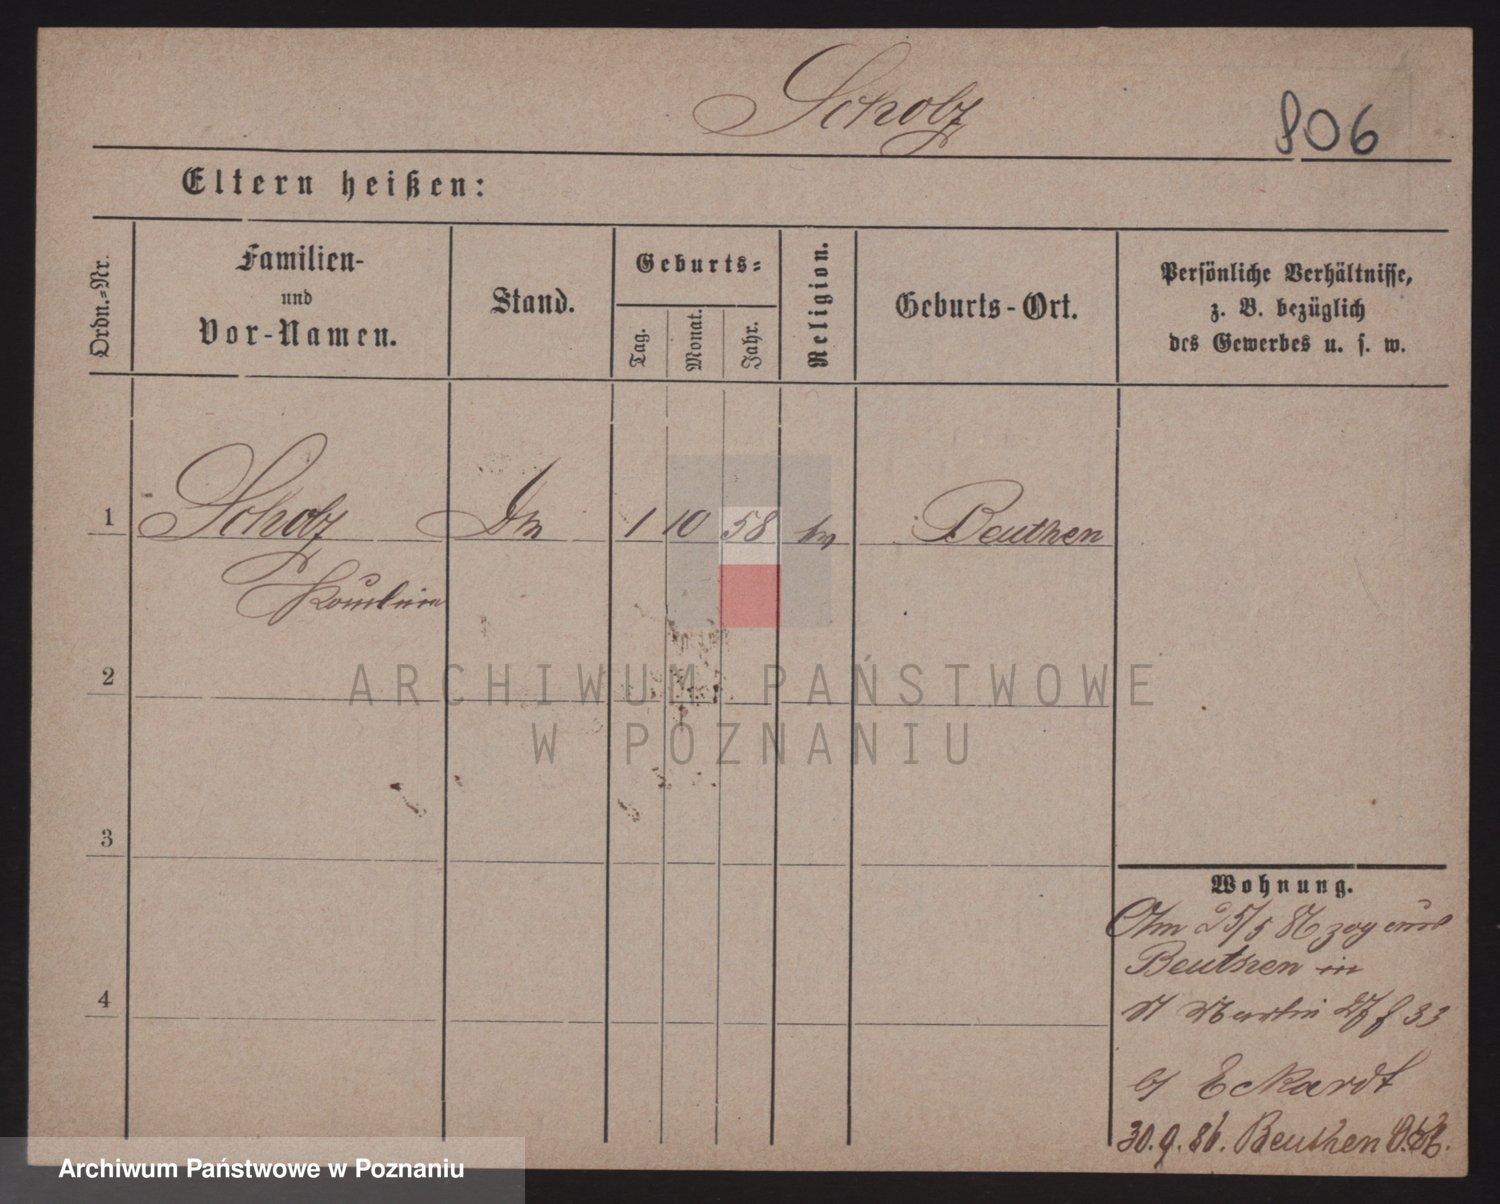 Scholz
806
Eltern heißen:
Ordn.=Nr.
Familien-
und
Vor-Namen.
Stand.
Geburts=
Tag.
Monat.
Jahr.
Religion.
Geburts-Ort.
Persönliche Verhältnisse,
z. B. bezüglich
des Gewerbes u. s. w.
1 Scholz 1 10 58 Beuthen
2
3
4
Wohnung.
Am 25/5 86 zog aus
Beuthen in
St Martin 33
b/ Eckardt
30.9.86. Beuthen
ARCHIWUM PAŃSTWOWE
W POZNANIU
Archiwum Państwowe w Poznaniu